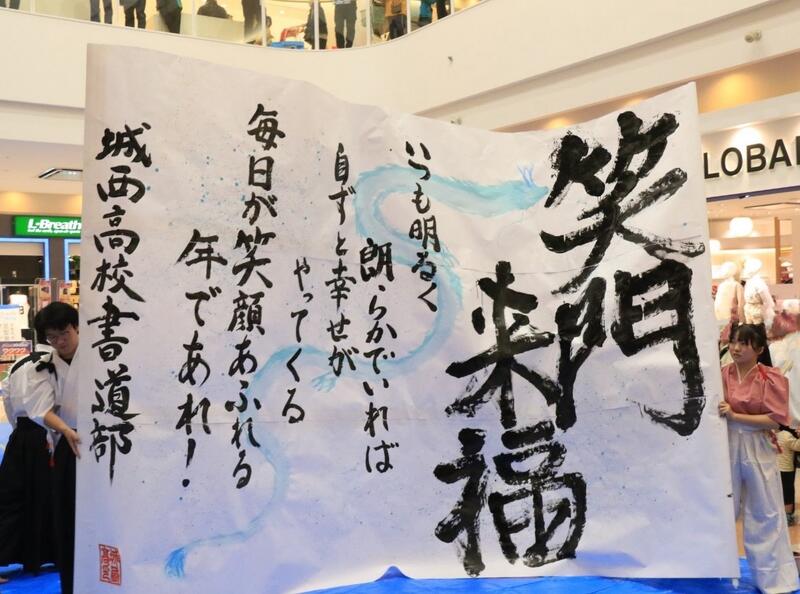 笑門
来福
いつも明るく
朗らかでいれば
自ずと幸せが
やってくる
毎日が笑顔あふれる
年であれ!
城西高校書道部
L-Breath
LOBA